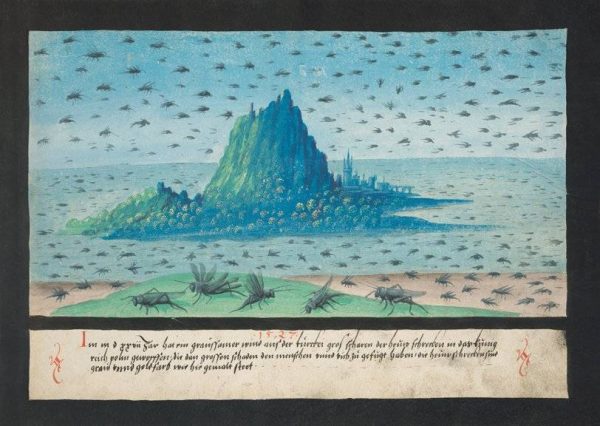 1527
Im m d xxvii Jar hat ein grausamer wind aus der türckei gros scharen der heüschrecken in das küng
reich poln geworffen, die dan grossen schaden den menschen vnnd vich zu gefügt haben, die heüwschrecken sind
graw vnnd goldfarb wie hie gemalt stet